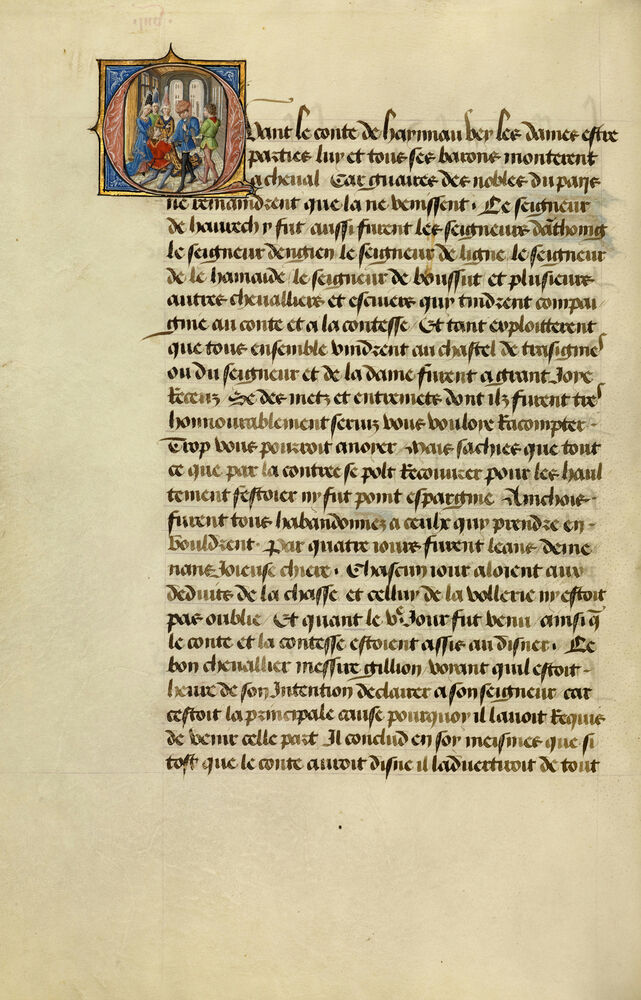 Quant le conte de haynnau vey les dames estre
parties luy et tous ses barons monterent
a cheval Car guaires des nobles du pays
ne remaindrent que la ne venissent. Le seigneur
de havrech y fut aussi furent les seigneurs danthoing
le seigneur denghien le seigneur de ligne le seigneur
de le hamaide le seigneur de boussut et plusieurs
autres chevalliers et escuiers quy tindrent compai
gnie au conte et a la contesse Et tant exploitterent
que tous ensemble vindrent au chastel de trasignies
ou du seigneur et de la dame furent a grant Joye
Receuz Se des metz et entremetz dont ilz furent tres
honnourablement servis vous vouloye Racompter -
Trop vous pourroit anoyer Mais sachies que tout
ce que par la contree se polt Recouvrer pour les haul
tement festoier ny fut point espargnie Ainchois -
furent tous habandonnez a ceulx quy prendre en -
vouldrent. Par quatre iours furent leans deme
nans Joieuse chiere. Chascun iour aloient aux
deduits de la chasse et celluy de la vollerie ny estoit
pas oublie Et quant le ve Jour fut venu ainsi q̃
le conte et la contesse estoient assis au disner. Le
bon chevallier messire gillion voyant quil estoit -
heure de son Intention declairer a son seigneur car
cestoit la principale cause pourquoy il lavoit Requis
de venir celle part Il conclud en soy meismes que si
tost que le conte auroit disne il ladvertiroit de tout